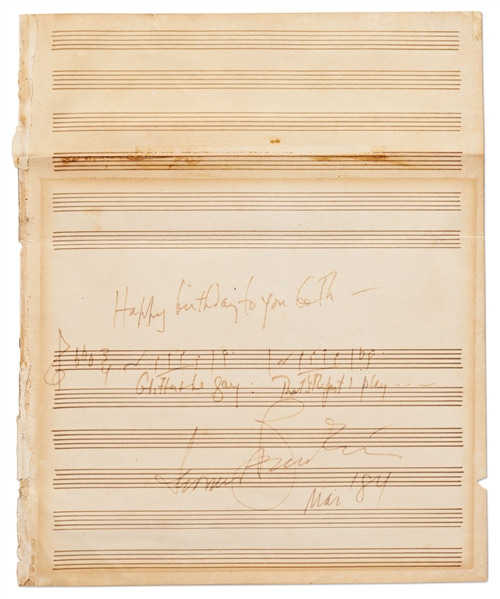 Happy birthday to you —
Glitter & be gay: That's the part I play - - -
Leonard Bernstein
Mar '84